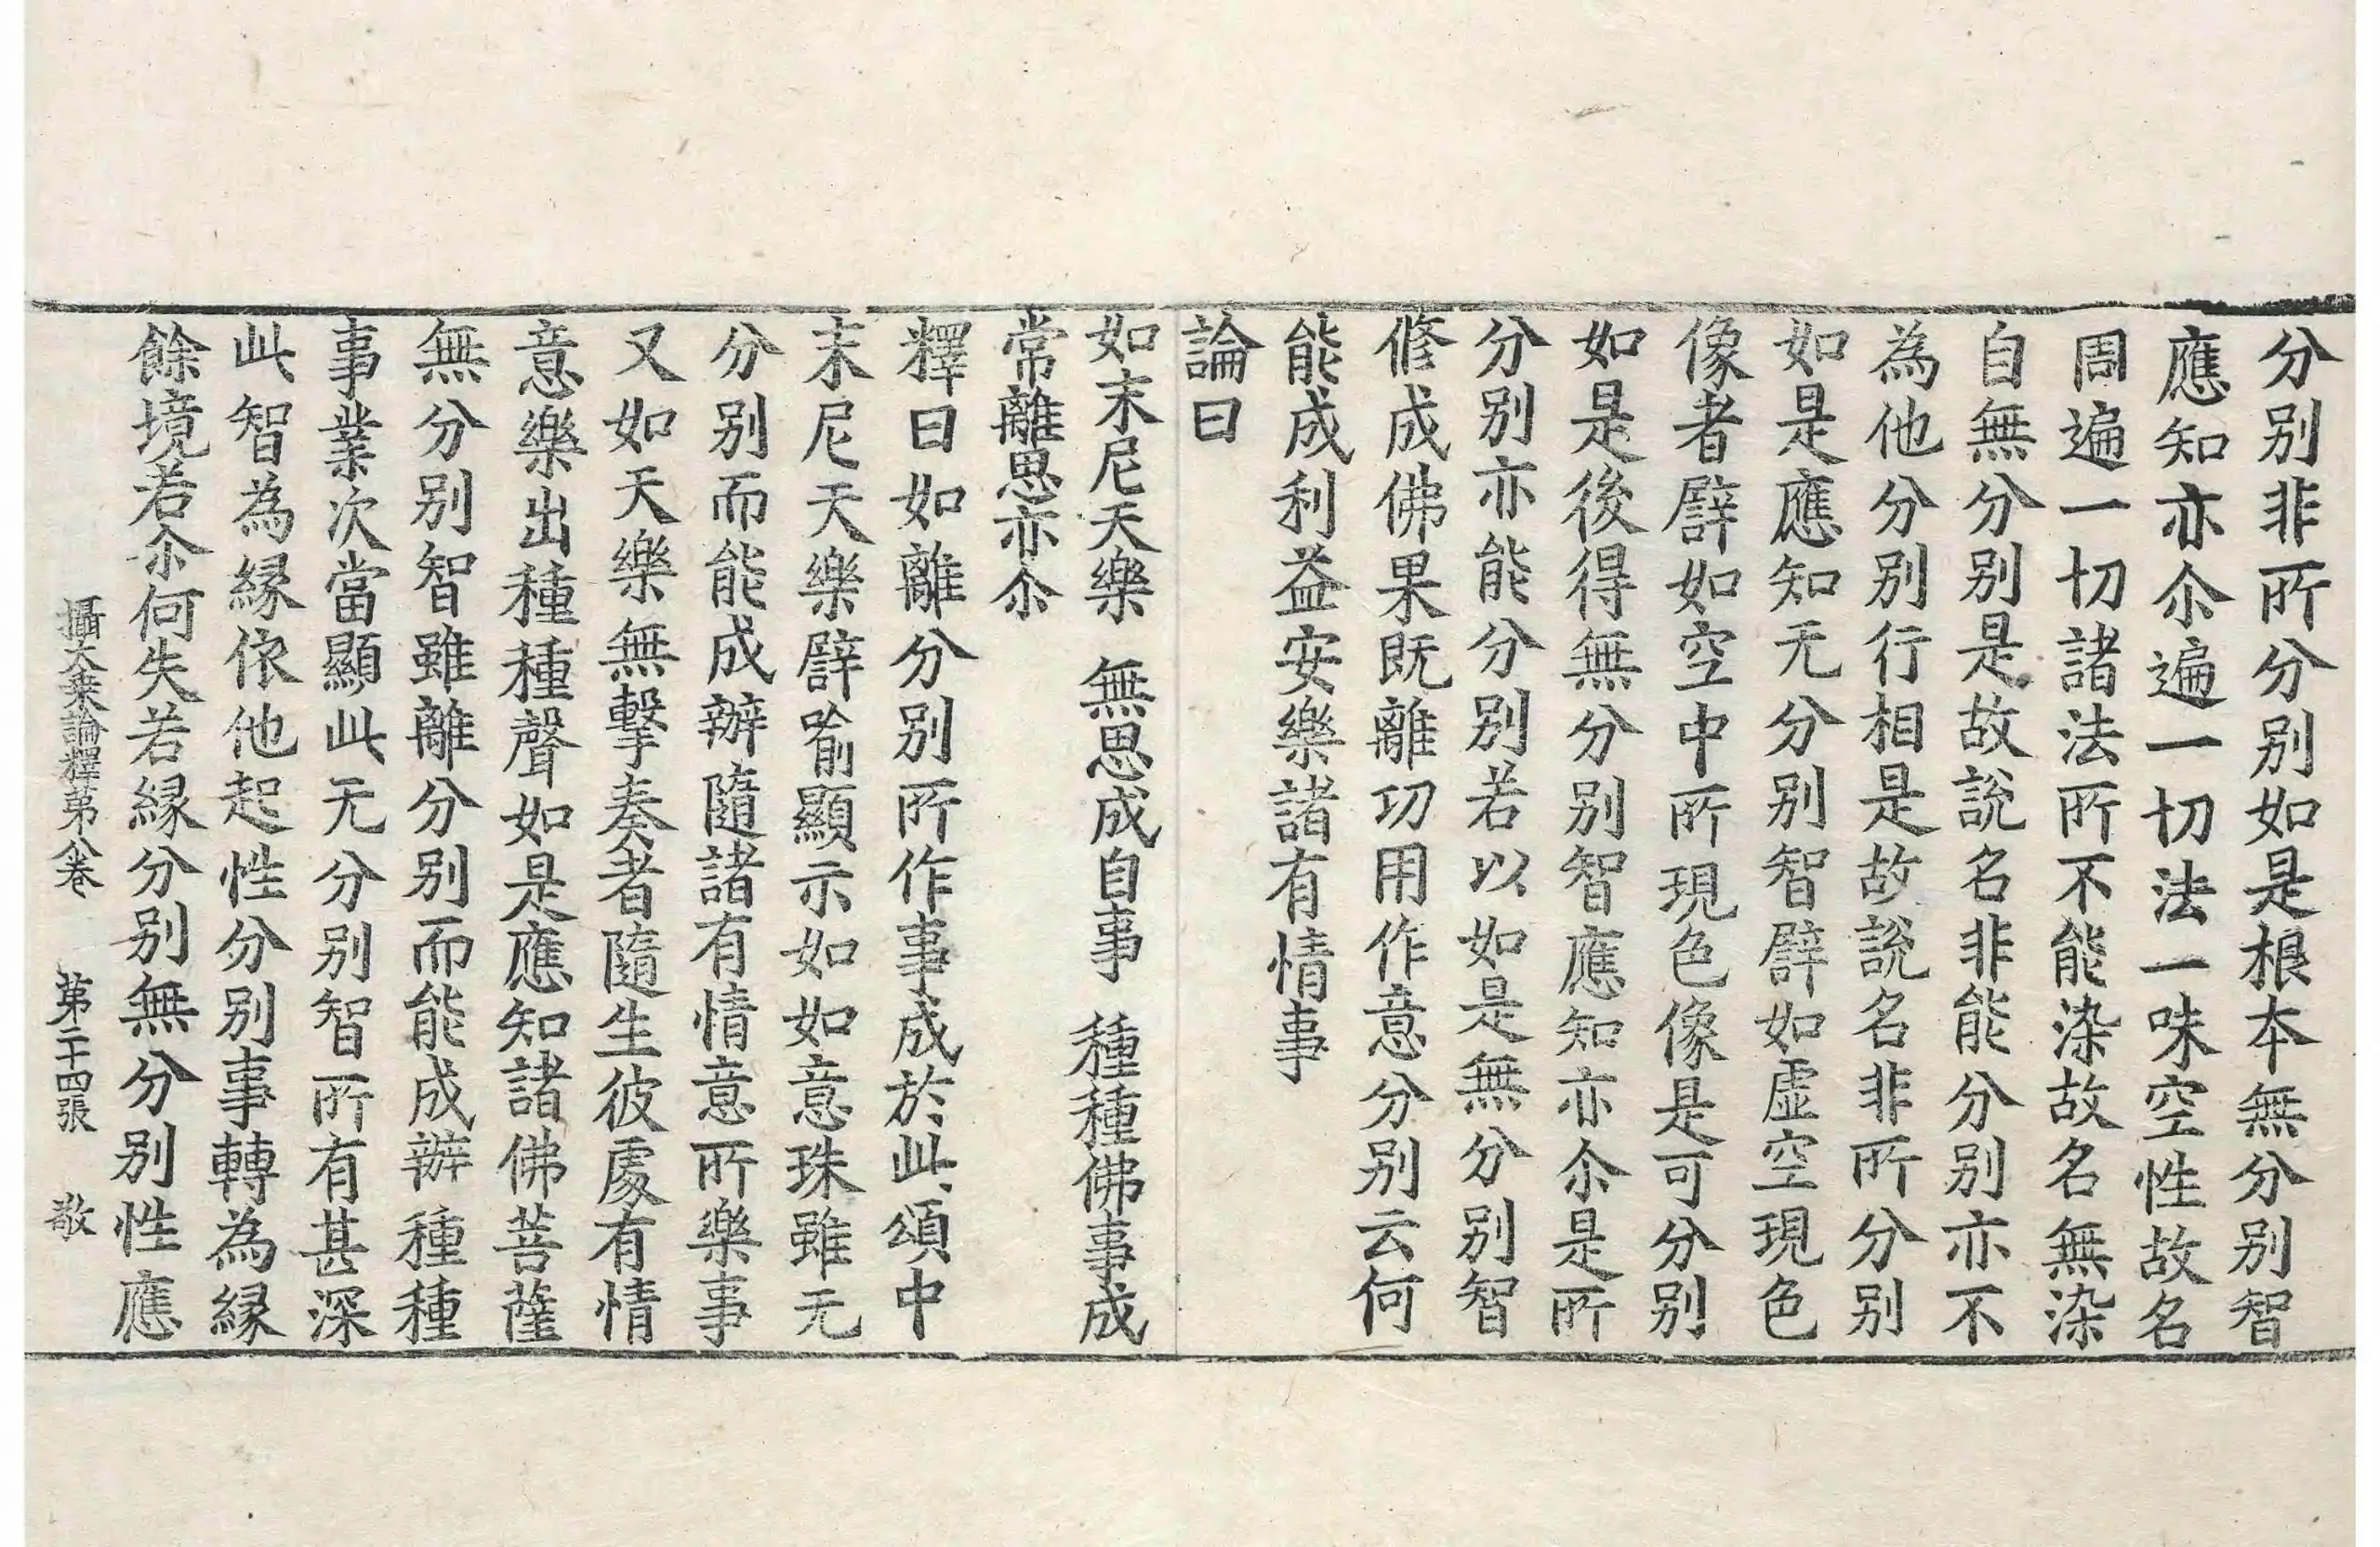 分別非所分別如是根本無分別智
應知亦尒遍一切法一味空性故名
周遍一切諸法所不能染故名無染
自無分別是故說名非能分別亦不
為他分別行相是故說名非所分別
如是應知无分別智譬如虛空現色
像者譬如空中所現色像是可分別
如是後得無分別智應知亦尒是所
分別亦能分別若以如是無分別智
修成佛果既離功用作意分別云何
能成利益安樂諸有情事
論曰
如末尼天樂　無思成自事　種種佛事成
常離思亦尒
釋曰如離分別所作事成於此頌中
末尼天樂譬喻顯示如如意珠雖无
分別而能成辦隨諸有情意所樂事
又如天樂無擊奏者隨生彼處有情
意樂出種種聲如是應知諸佛菩薩
無分別智雖離分別而能成辦種種
事業次當顯此无分別智所有甚深
此智為緣依他起性分別事轉為緣
餘境若尒何失若緣分別無分別性應
攝大乘論釋第八卷　第二十四張　敬